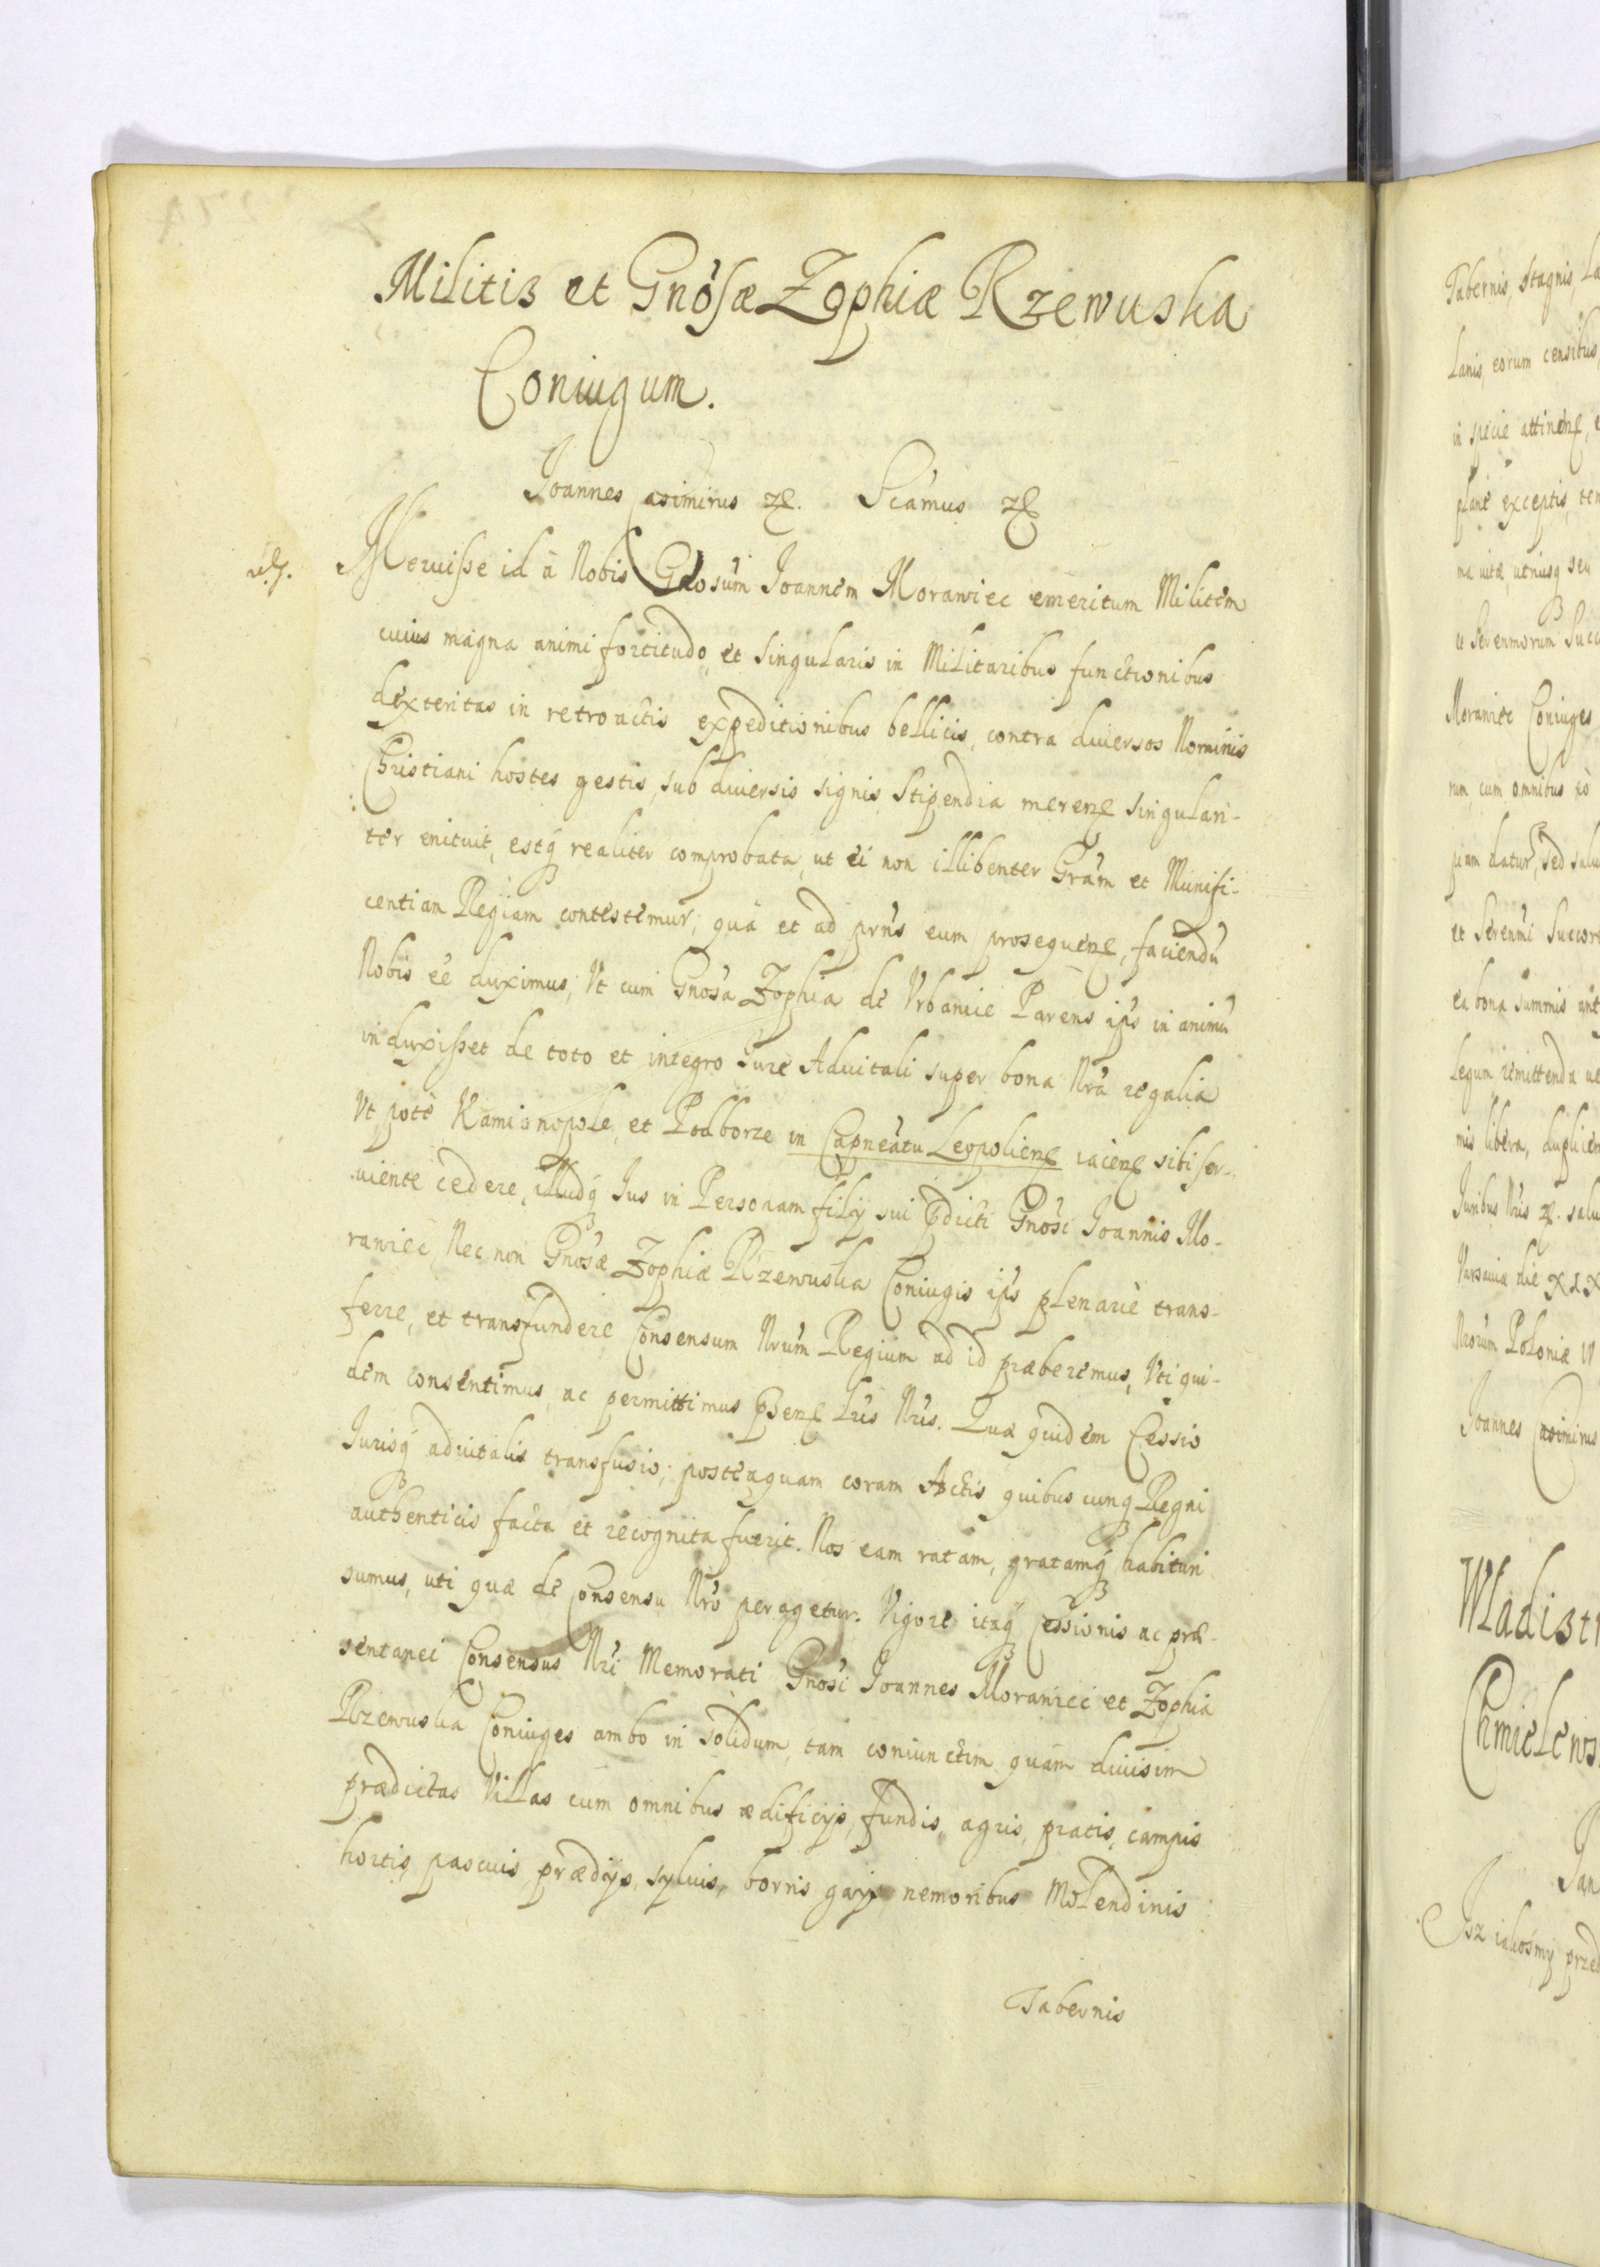 Militis et Gnosæ Zophiæ Rzewuska
Coniugum.
Ioannes Casimirus etc. Scamus etc
Meruisse id à Nobis Gnosum Ioannem Morawiec emeritum Militem
cuius magna animi fortitudo, et singularis in Militaribus functionibus
dexteritas in retroactis expeditionibus bellicis, contra diuersos Nominis
Christiani hostes gestis, sub diuersis signis Stipendia meren singulari-
ter enituit, estq realiter comprobata, ut ei non illibenter Gram et Munifi-
centiam Regiam contestemur, qua et ad prns eum prosequen, faciendu
Nobis ee duximus, Vt cum Gnosa Zophia de Vrbanie Parens ips in animu
induxisset de toto et integro Iure Aduitali super bona Nra regalia
Vt pote Kamionopole, et Podborze in Capneatu Leopolien iacen sibi ser-
uiente cedere, illudq Ius in Personam filij sui pdicti Gnosi Ioannis Mo-
rawiec, Nec non Gnosæ Zophiæ Rzewuska Coniugis ips plenarie trans-
ferre, et transfundere Consensum Nrum Regium ad id præberemus, Vti qui-
dem consentimus, ac permittimus psen Lris Nris. Quæ quidem Cessio
Iurisq aduitalis transfusio, posteaquam coram Actis quibus cunq Regni
authenticis facta et recognita fuerit. Nos eam ratam, gratamq habituri
sumus, uti quæ de Consensu Nro peragetur. Vigore itaq Cessionis ac præ-
sentanei Consensus Nri Memorati Gnosi Ioannes Morawiec et Zophia
Rzewuska Coniuges ambo in solidum, tam coniunctim quam diuisim
prædictas Villas cum omnibus ædificijs, fundis, agris, pratis, campis
hortis, pascuis, prædijs, syluis, borris gajis nemoribus Molendinis
Tabernis
Tabernis, stagnis, la
lanis, eorum censibus,
in specie attinen, e
plane exceptis, ten
ma uitæ utriusq seu
Morawiec Coniuges
rum, cum omnibus eo
et Serenmi Succor
ea bona summis
Legum remittenda ue
mis libera, duplicen
Iuribus Nris etc. salu
Varsauiæ die XIX
Nrorum Poloniæ VI
Ioannes Casimirus
Wladisti
Chmielews
Jan
Isz iakosmy przed